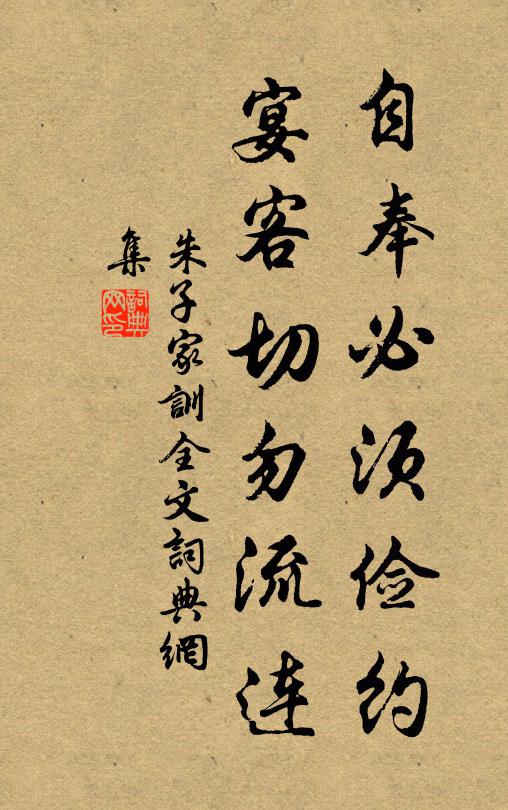 自奉必须俭约
宴客切勿流连
朱子家訓全文詞典網
集
詞典网印